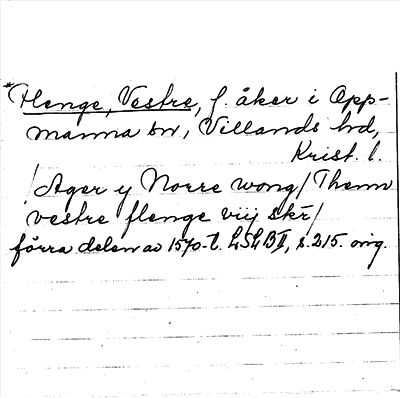 *Flenge, Vestre, f. åker i Opp-
manna sn, Villands hd,
Krist. l.
/Ager y Norre wong/Thenn
vestre flenge viij skr/
förra delen av 1570-t. LSLB II, s. 215. orig.